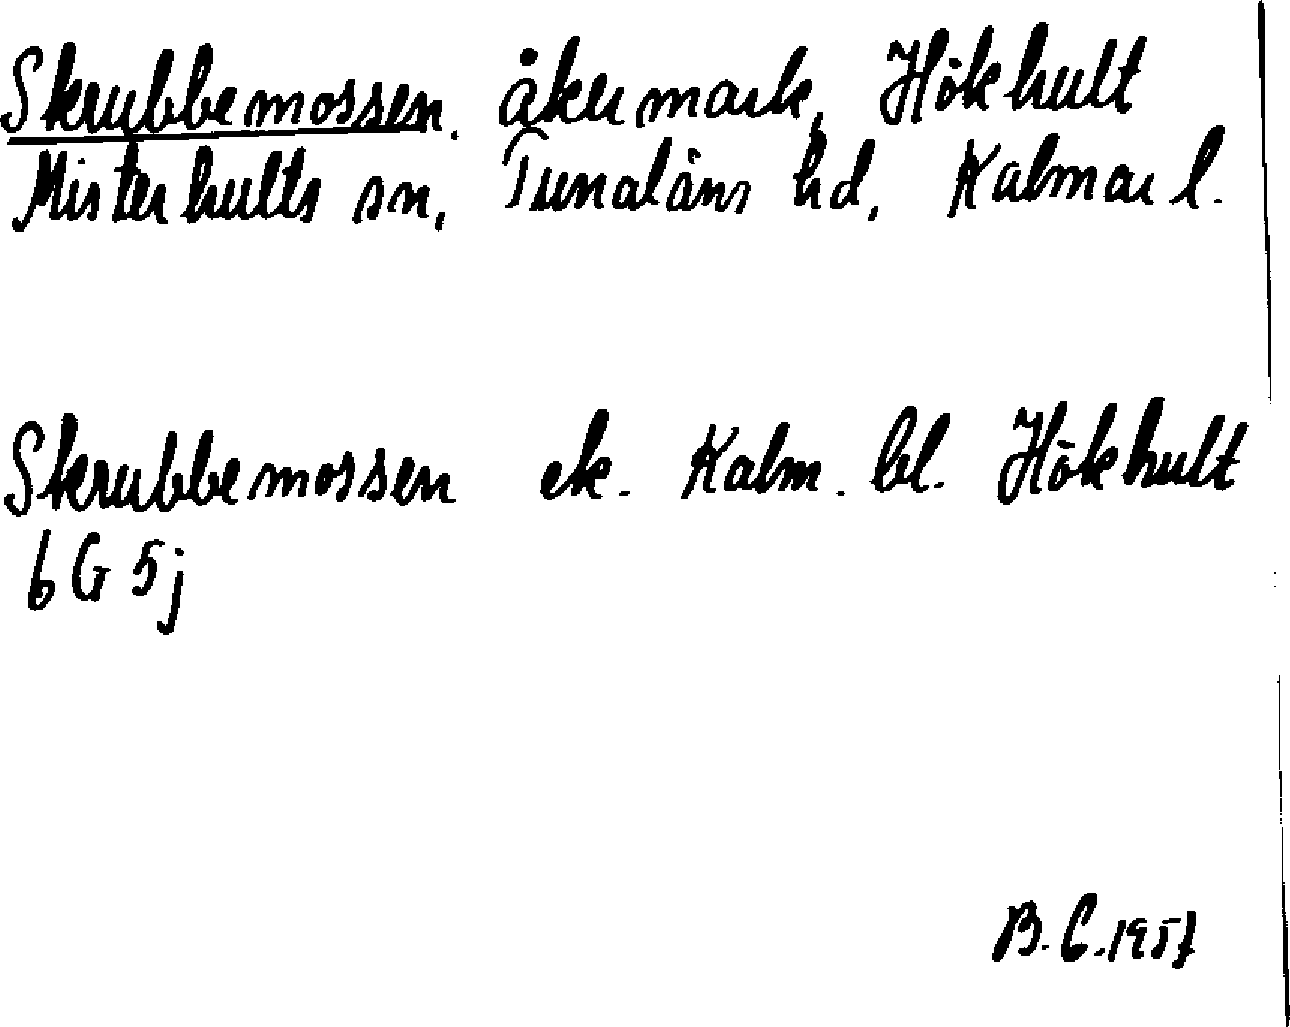 Skrubbemossen. åkermark, Hökhult
Misterhults sn, Tunaläns hd, Kalmar l.
Skrubbemossen ek. Kalm. bl. Hökhult
6G 5j
B.C. 1957